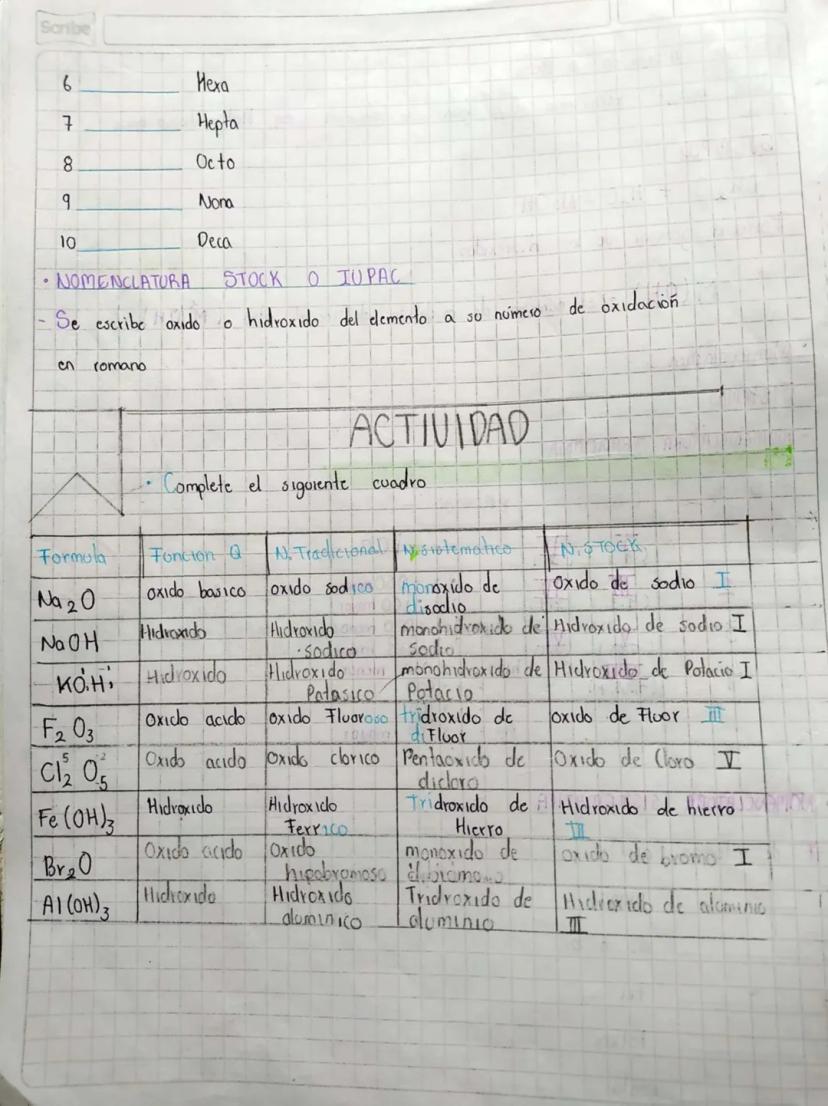 Scribe
6 ________ Hexa
7 ________ Hepta
8 ________ Octo
9 ________ Nona
10 ________ Deca
• NOMENCLATURA STOCK O IUPAC
- Se escribe oxido o hidroxido del elemento a su número de oxidación
en romano
ACTIVIDAD
• Complete el siguiente cuadro
Formula Funcion Q N. Tradicional N. sistematico N. STOCK
Na2O oxido basico oxido sodico monoxido de disodio Oxido de sodio I
NaOH Hidroxido Hidroxido sodico monohidroxido de sodio Hidroxido de sodio I
KOH Hidroxido Hidroxido Potasico monohidroxido de Potacio Hidroxido de Potacio I
F2O3 Oxido acido oxido Fluoroso tridroxido de diFluor oxido de Fluor III
Cl2O5 Oxido acido Oxido clorico Pentaoxido de dicloro Oxido de Cloro V
Fe(OH)3 Hidroxido Hidroxido Ferrico Tridroxido de Hierro Hidroxido de hierro III
Br2O Oxido acido Oxido hipobromoso monoxido de dibromo oxido de bromo I
Al(OH)3 Hidroxido Hidroxido aluminico Tridroxido de aluminio Hidroxido de aluminio III